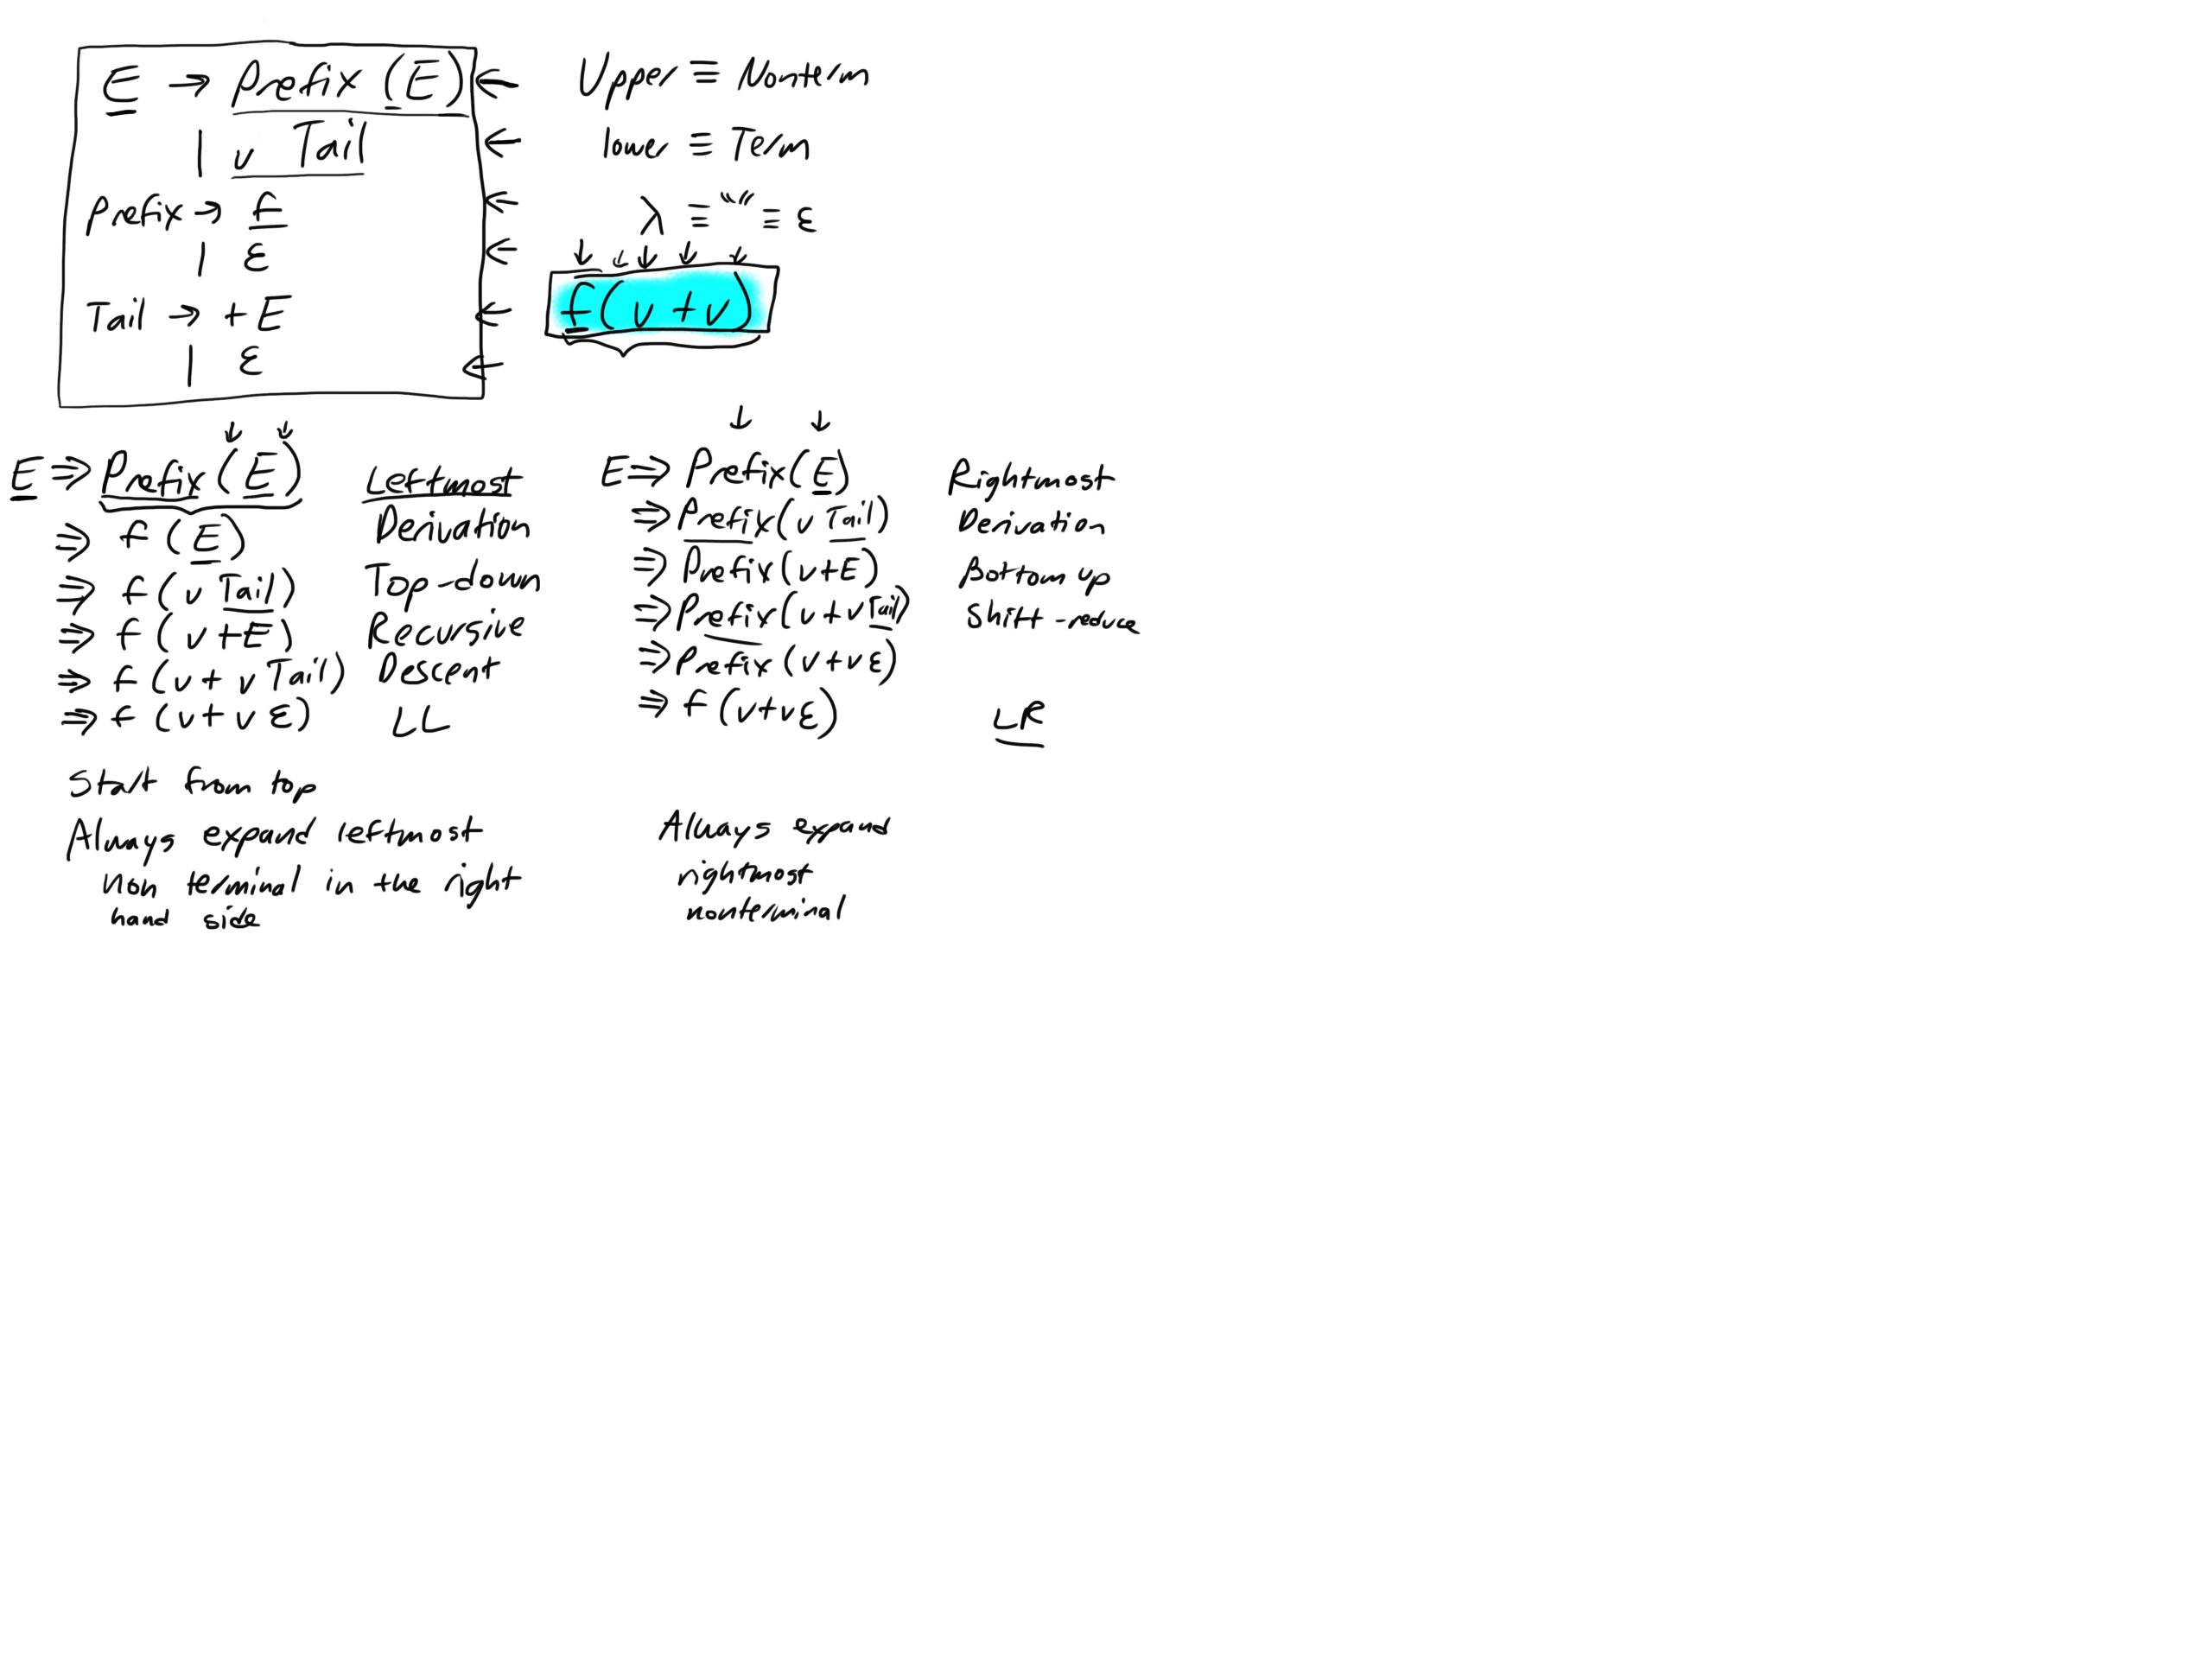 E → Prefix (E)
| v Tail
Prefix → f
| ε
Tail → + E
| ε
Upper ≡ Nonterm
lower ≡ Term
λ ≡ "" ≡ ε
f(v+v)
E ⇒ Prefix (E)
⇒ f (E)
⇒ f (v Tail)
⇒ f (v+E)
⇒ f (v + v Tail)
⇒ f (v+v ε)
Leftmost
Derivation
Top-down
Recursive
Descent
LL
Start from top
Always expand leftmost
non terminal in the right
hand side
E ⇒ Prefix(E)
⇒ Prefix(v Tail)
⇒ Prefix(v+E)
⇒ Prefix(v+v Tail)
⇒ Prefix (v+v ε)
⇒ f (v+v ε)
Rightmost
Derivation
Bottom up
Shift-reduce
LR
Always expand
rightmost
nonterminal